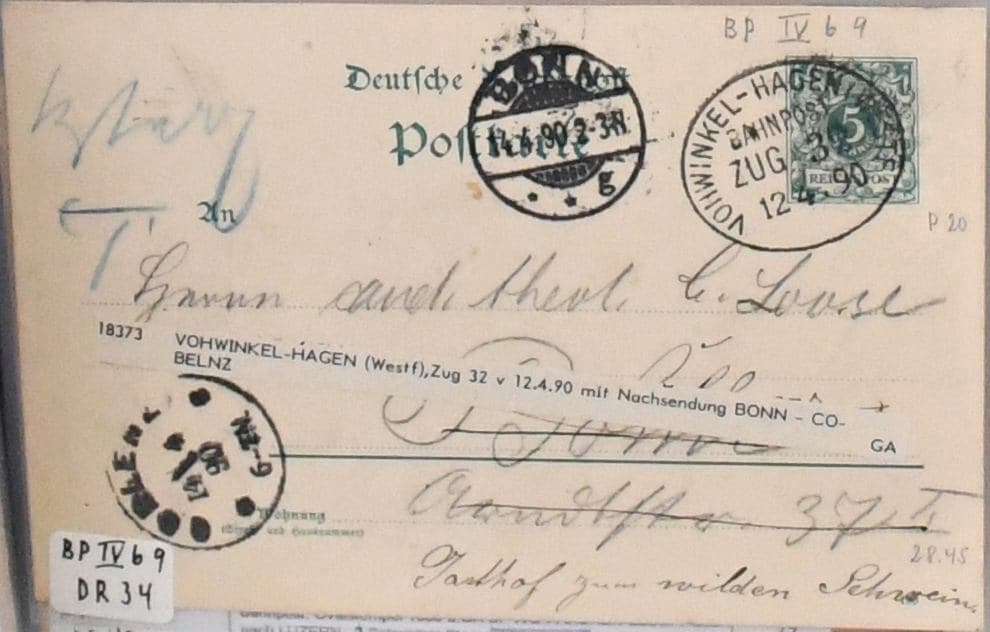 BP IV b 9
Deutsche Post
Postkarte
BONN
14.4.90 2-3N
g
VOHWINKEL-HAGEN
BAHNPOST
ZUG 32
12.4.90
5
P 20
An
Herrn cand. theol. C. Loose
18373 VOHWINKEL-HAGEN (Westf), Zug 32 v 12.4.90 mit Nachsendung BONN - CO-
BELNZ GA
Bonn
COBLENZ
14 4 90
6-7N.
Wohnung
Arndtstr. 37 I
28.45
Gasthof zum wilden Schwein.
BP IV b 9
DR 34